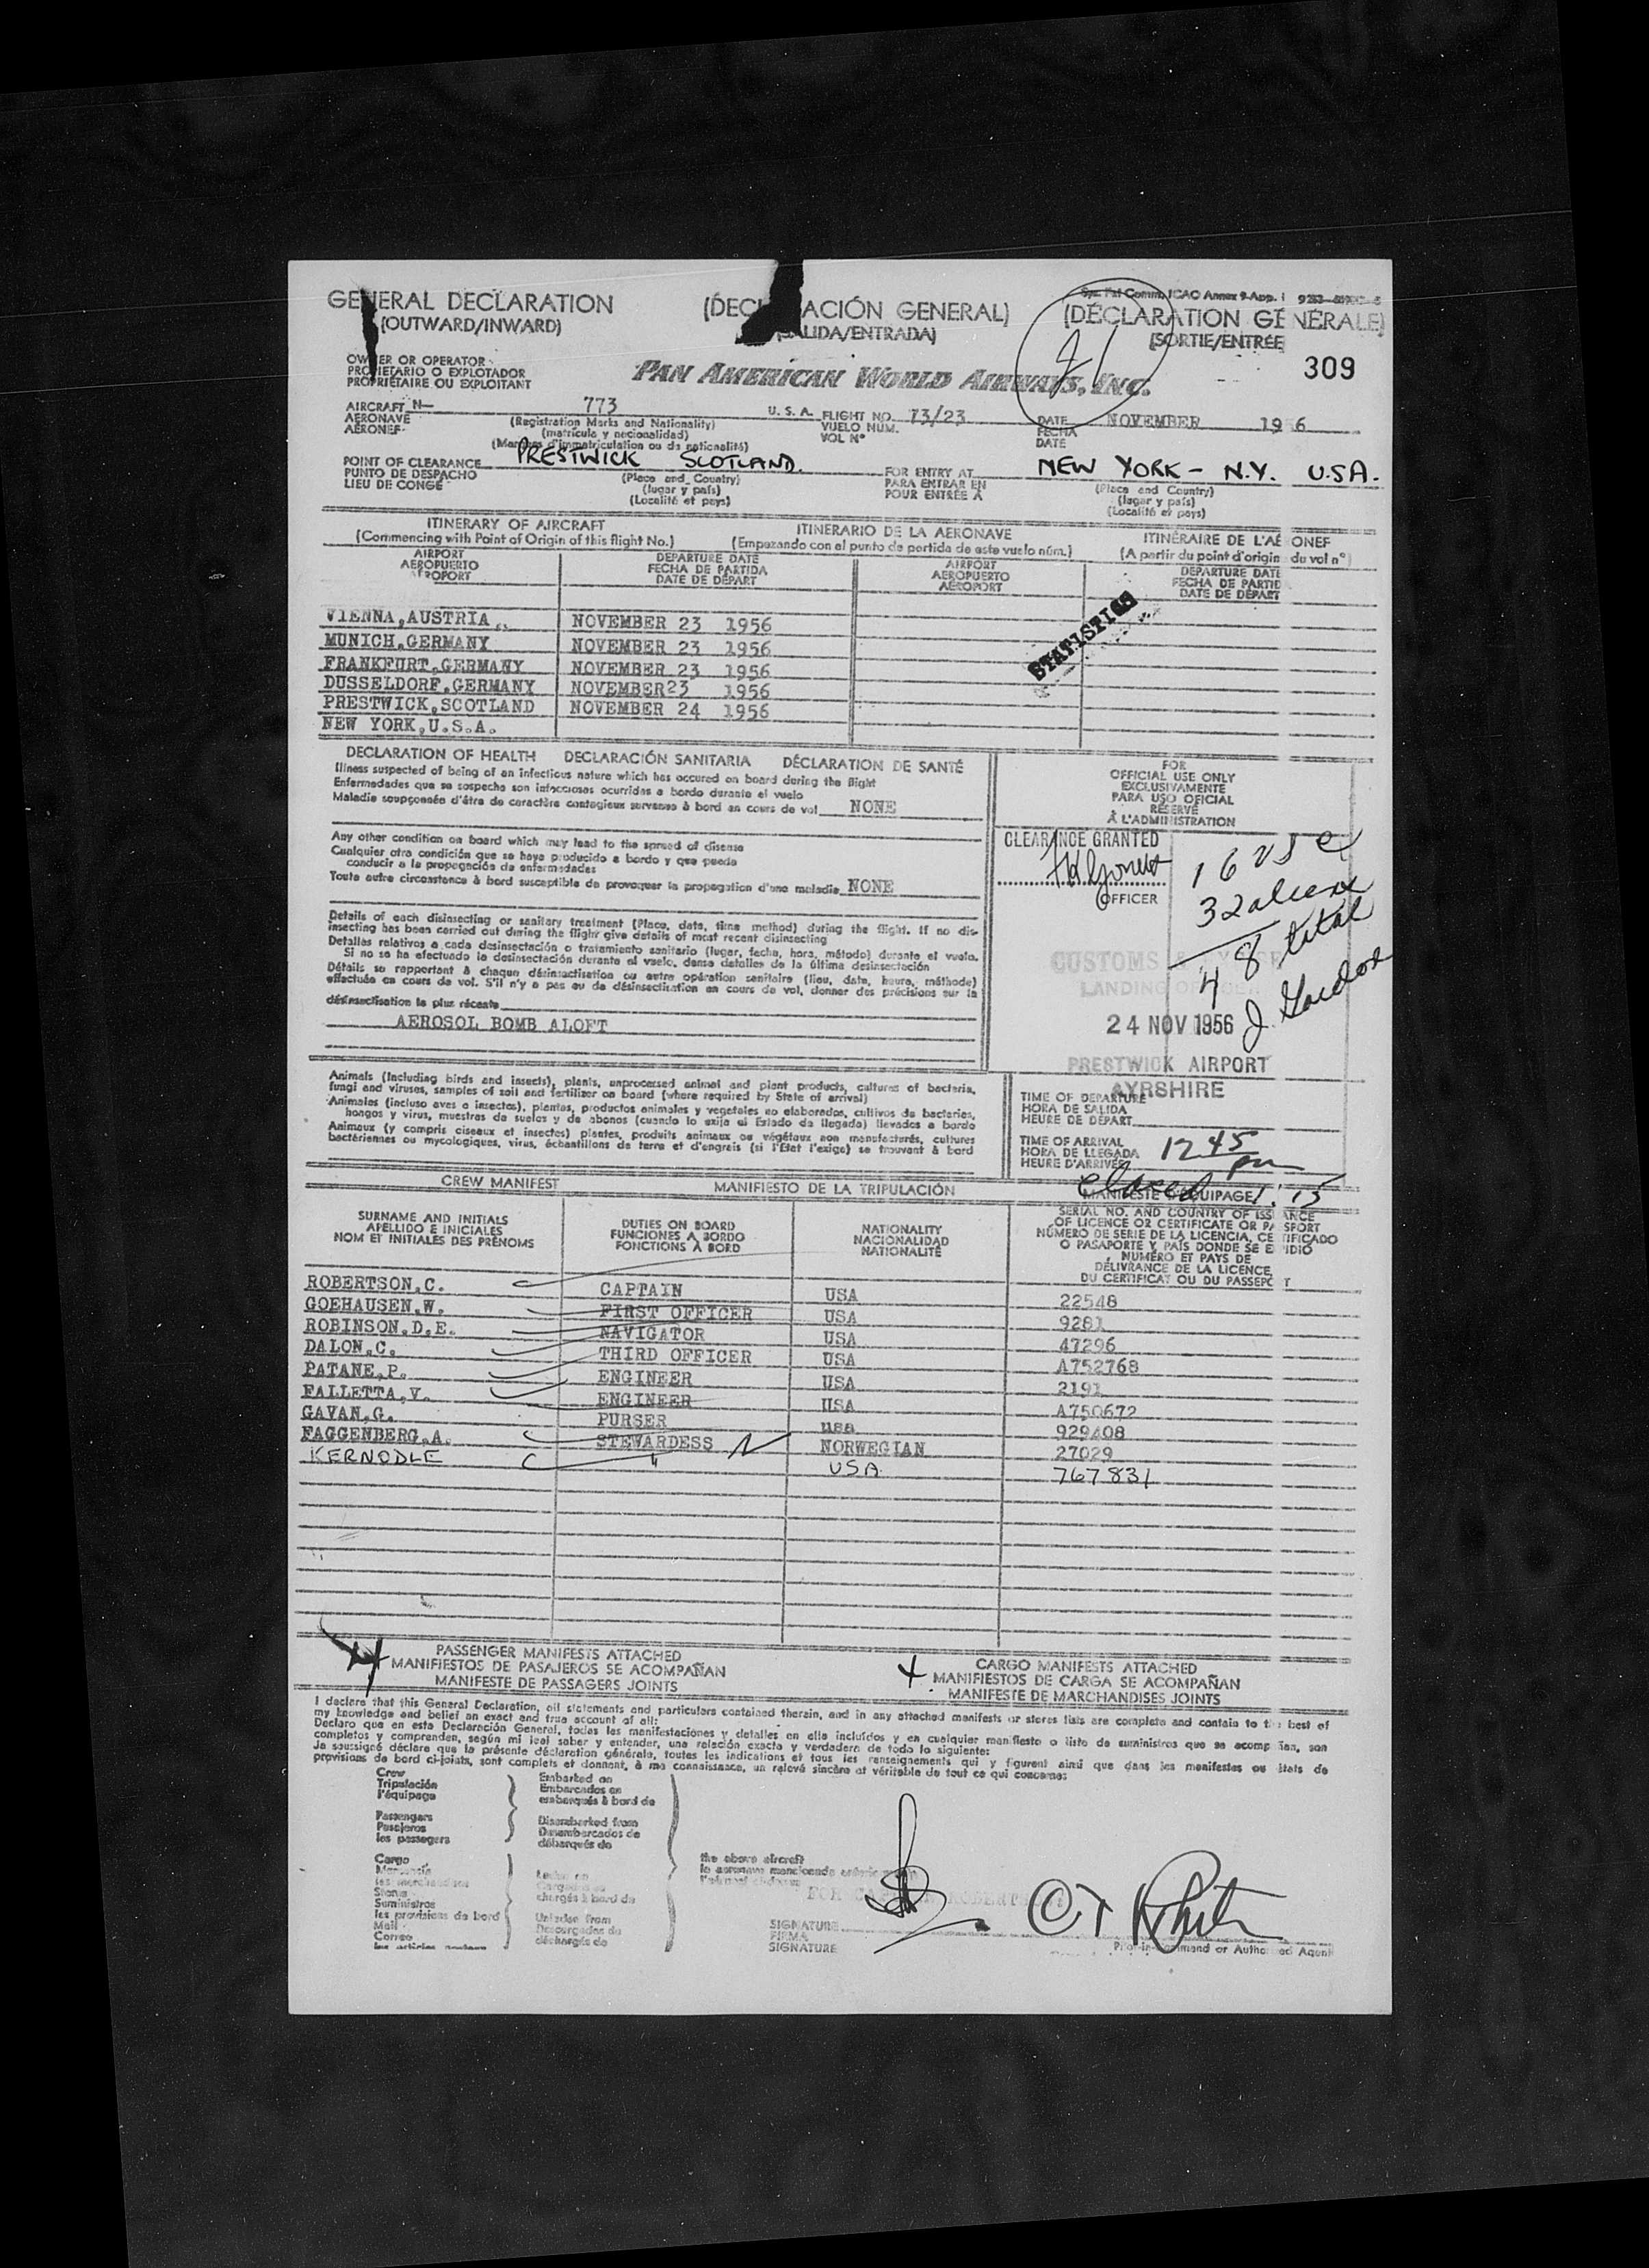 Sys. Pat Comm. ICAO Annex 9-App. 1
GENERAL DECLARATION (DEC ACIÓN GENERAL) (DÉCLARATION GÉNÉRALE)
(OUTWARD/INWARD) LIDA/ENTRADA) (SORTIE/ENTRÉE
309
OWNER OR OPERATOR
PROPIETARIO O EXPLOTADOR
PROPRIÉTAIRE OU EXPLOITANT
PAN AMERICAN WORLD AIRWAYS, INC.
AIRCRAFT N- 773 U. S. A. FLIGHT NO. 73/23 DATE NOVEMBER 19 6
AERONAVE (Registration Marks and Nationality) VUELO NÚM. FECHA
AÉRONEF (matrícula y nacionalidad) VOL Nº DATE
(Marques d'immatriculation ou de nationalité)
POINT OF CLEARANCE PRESTWICK SCOTLAND. FOR ENTRY AT NEW YORK - N.Y. U.S.A.
PUNTO DE DESPACHO (Place and Country) PARA ENTRAR EN (Place and Country)
LIEU DE CONGÉ (lugar y país) POUR ENTRÉE À (lugar y país)
(Localité et pays) (Localité et pays)
ITINERARY OF AIRCRAFT ITINERARIO DE LA AERONAVE ITINÉRAIRE DE L'AÉ ONEF
(Commencing with Point of Origin of this flight No.) (Empezando con el punto de partida de este vuelo núm.) (A partir du point d'origin du vol nº)
AIRPORT DEPARTURE DATE AIRPORT DEPARTURE DATE
AEROPUERTO FECHA DE PARTIDA AEROPUERTO FECHA DE PARTID
AÉROPORT DATE DE DÉPART AÉROPORT DATE DE DÉPART
STATISTICS
VIENNA,AUSTRIA NOVEMBER 23 1956
MUNICH,GERMANY NOVEMBER 23 1956
FRANKFURT,GERMANY NOVEMBER 23 1956
DUSSELDORF,GERMANY NOVEMBER23 1956
PRESTWICK,SCOTLAND NOVEMBER 24 1956
NEW YORK,U.S.A.
DECLARATION OF HEALTH DECLARACIÓN SANITARIA DÉCLARATION DE SANTÉ
Illness suspected of being of an infectious nature which has occured on board during the flight
Enfermedades que se sospeche son infecciosas ocurridas a bordo durante el vuelo
Maladie soupçonnée d'être de caractère contagieux survenue à bord en cours de vol NONE
Any other condition on board which may lead to the spread of disease
Cualquier otra condición que se haya producido a bordo y que pueda
conducir a la propagación de enfermedades
Toute autre circonstance à bord susceptible de provoquer la propagation d'une maladie NONE
Details of each disinsecting or sanitary treatment (Place, date, time method) during the flight. If no dis-
insecting has been carried out during the flight give details of most recent disinsecting
Detalles relativos a cada desinsectación o tratamiento sanitario (lugar, fecha, hora, método) durante el vuelo.
Si no se ha efectuado la desinsectación durante el vuelo, dense detalles de la última desinsectación
Détails se rapportant à chaque désinsectisation ou autre opération sanitaire (lieu, date, heure, méthode)
effectuée en cours de vol. S'il n'y a pas eu de désinsectisation en cours de vol, donner des précisions sur la
désinsectisation la plus récente
AEROSOL BOMB ALOFT
FOR
OFFICIAL USE ONLY
EXCLUSIVAMENTE
PARA USO OFICIAL
RÉSERVÉ
À L'ADMINISTRATION
CLEARANCE GRANTED
OFFICER
16 USC
32 aliens
48 total
J. Gordon
CUSTOMS & EXCISE
LANDING OFFICER
24 NOV 1956
PRESTWICK AIRPORT
AYRSHIRE
Animals (Including birds and insects), plants, unprocessed animal and plant products, cultures of bacteria,
fungi and viruses, samples of soil and fertilizer on board (where required by State of arrival)
Animales (incluso aves o insectos), plantas, productos animales y vegetales no elaborados, cultivos de bacterias,
hongos y virus, muestras de suelos y de abonos (cuando lo exija el Estado de llegada) llevados a bordo
Animaux (y compris oiseaux et insectes) plantes, produits animaux ou végétaux non manufacturés, cultures
bactériennes ou mycologiques, virus, échantillons de terre et d'engrais (si l'État l'exige) se trouvant à bord
TIME OF DEPARTURE
HORA DE SALIDA
HEURE DE DÉPART
TIME OF ARRIVAL
HORA DE LLEGADA 12 45 pm
HEURE D'ARRIVÉE
closed 1:15
CREW MANIFEST MANIFIESTO DE LA TRIPULACIÓN MANIFESTE D'ÉQUIPAGE
SURNAME AND INITIALS DUTIES ON BOARD NATIONALITY SERIAL NO. AND COUNTRY OF ISS ANCE
APELLIDO E INICIALES FUNCIONES A BORDO NACIONALIDAD OF LICENCE OR CERTIFICATE OR PA SPORT
NOM ET INITIALES DES PRÉNOMS FONCTIONS À BORD NATIONALITÉ NÚMERO DE SERIE DE LA LICENCIA, CE TIFICADO
O PASAPORTE Y PAÍS DONDE SE E IDIÓ
NUMÉRO ET PAYS DE
DÉLIVRANCE DE LA LICENCE
DU CERTIFICAT OU DU PASSEPO T
ROBERTSON,C. CAPTAIN USA 22548
GOEHAUSEN,W. FIRST OFFICER USA 9281
ROBINSON,D.E. NAVIGATOR USA 47296
DALON,C. THIRD OFFICER USA A752768
PATANE,P. ENGINEER USA 2191
FALLETTA,V. ENGINEER USA A750672
GAVAN,G. PURSER usa 929408
FAGGENBERG,A. STEWARDESS NORWEGIAN 27029
KERNODLE " USA 767831
PASSENGER MANIFESTS ATTACHED CARGO MANIFESTS ATTACHED
MANIFIESTOS DE PASAJEROS SE ACOMPAÑAN MANIFIESTOS DE CARGA SE ACOMPAÑAN
MANIFESTE DE PASSAGERS JOINTS MANIFESTE DE MARCHANDISES JOINTS
I declare that this General Declaration, all statements and particulars contained therein, and in any attached manifests or stores lists are complete and contain to the best of
my knowledge and belief an exact and true account of all:
Declaro que en esta Declaración General, todas las manifestaciones y detalles en ella incluídos y en cualquier manifiesto o lista de suministros que se acomp ñan, son
completos y comprenden, según mi leal saber y entender, una relación exacta y verdadera de todo lo siguiente:
Je soussigné déclare que la présente déclaration générale, toutes les indications et tous les renseignements qui y figurent ainsi que dans les manifestes ou états de
provisions de bord ci-joints, sont complets et donnent, à ma connaissance, un relevé sincère et véritable de tout ce qui concerne:
Crew Embarked on
Tripulación Embarcados en
l'équipage embarqués à bord de
Passengers Disembarked from
Pasajeros Desembarcados de
les passagers débarqués de
Cargo the above aircraft
Mercancía Laden on la aeronave mencionada
les marchandises Cargados en
Stores chargés à bord de
Suministros
les provisions de bord Unladen from
Mail Descargados de
Correo déchargés de
SIGNATURE
FIRMA
SIGNATURE
Pilot-in-command or Authorized Agent